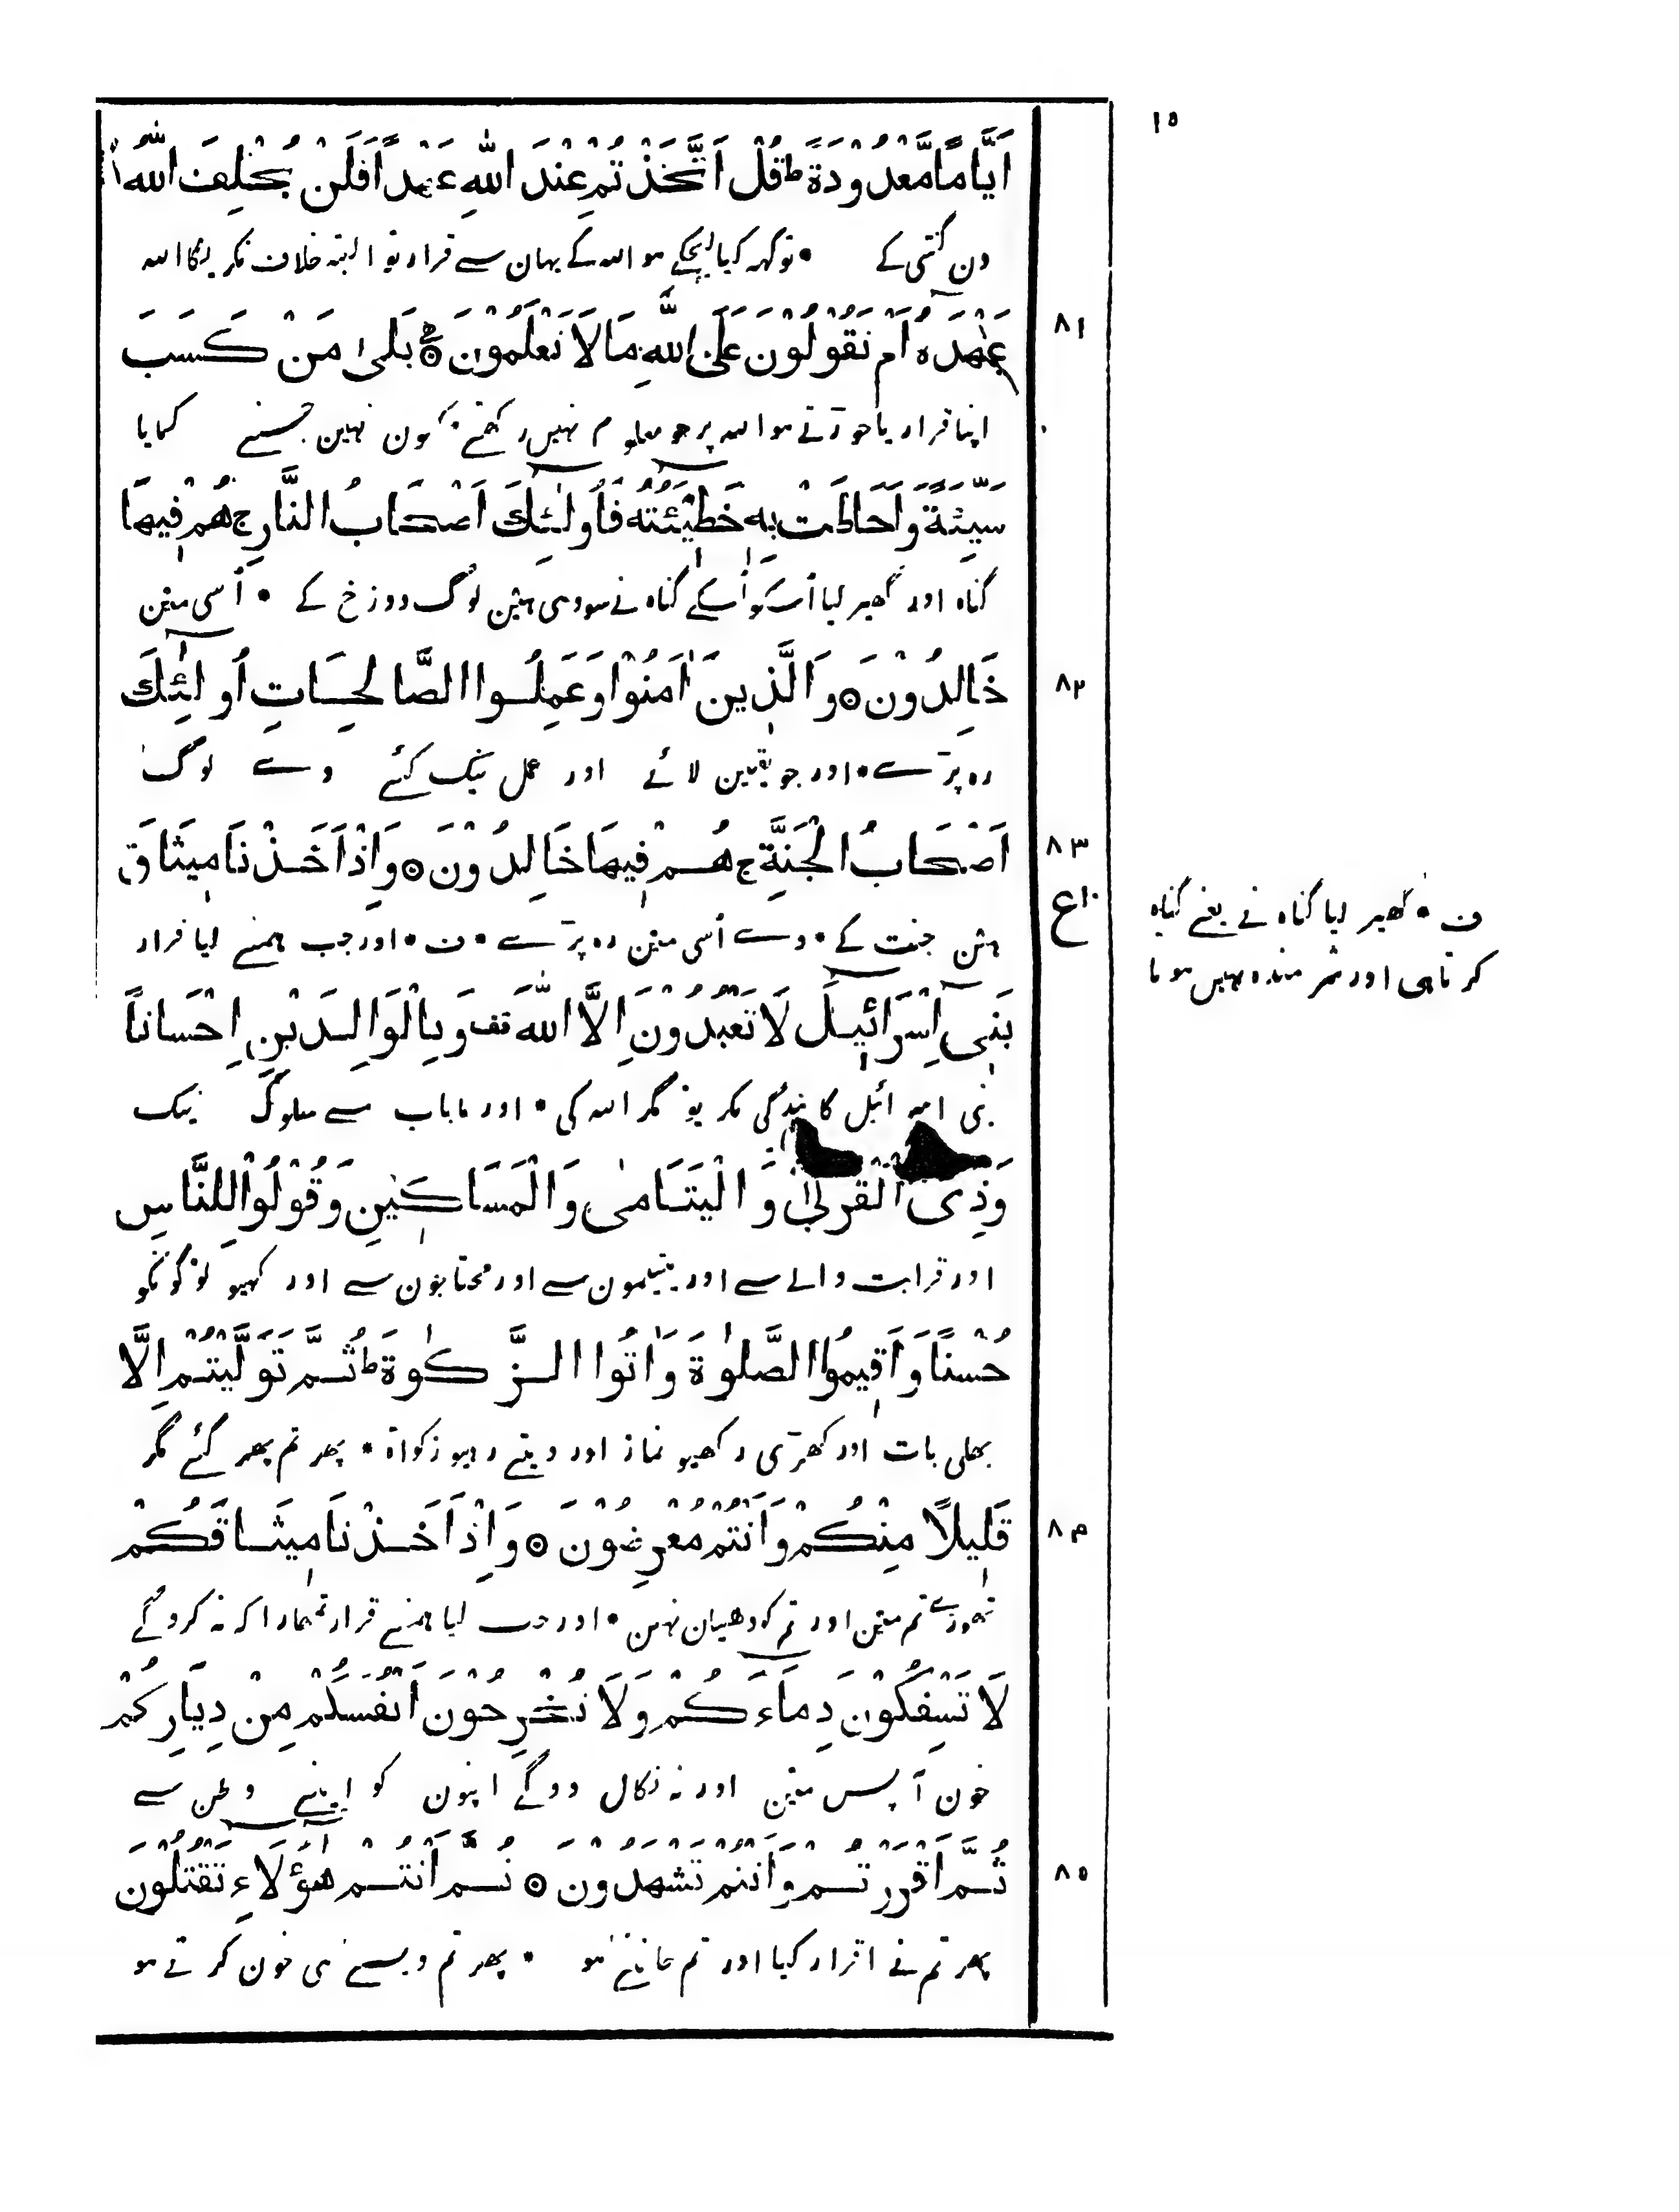 ١٥
اَيَّامًا مَّعْدُوْدَةً ط قُلْ اَتَّخَذْتُمْ عِنْدَ اللّٰهِ عَهْدًا فَلَنْ يُخْلِفَ اللّٰهُ
دن گنتی کے • تو کہہ کیا لیچکے ہو اللہ کے یہان سے قرار تو البتہ خلاف نکریگا اللہ
عَهْدَهٗ اَمْ تَقُوْلُوْنَ عَلَى اللّٰهِ مَا لَا تَعْلَمُوْنَ ۝ بَلٰى مَنْ كَسَبَ
٨١
اپنا قرار یا جوڑتے ہو اللہ پر جو معلوم نہیں رکھتے • کیون نہین جسنے کمایا
سَيِّئَةً وَّاَحَاطَتْ بِهٖ خَطِيْٓئَتُهٗ فَاُولٰٓئِكَ اَصْحَابُ النَّارِ ج هُمْ فِيْهَا
گناہ اور گھیر لیا اُسکو اُسکے گناہ نے سو وہی ہین لوگ دوزخ کے • اُسی مین
خَالِدُوْنَ ۝ وَالَّذِيْنَ اٰمَنُوْا وَعَمِلُوا الصَّالِحَاتِ اُولٰٓئِكَ
٨٢
رہ پڑے • اور جو یقین لائے اور عمل نیک کئے وے لوگ
اَصْحَابُ الْجَنَّةِ ج هُمْ فِيْهَا خَالِدُوْنَ ۝ وَاِذْ اَخَذْنَا مِيْثَاقَ
٨٣
١٠ ع
ہین جنت کے • وے اُسی مین رہ پڑے • ف • اور جب ہمنے لیا قرار
ف • گھیر لیا گناہ نے یعنے گناہ
کرتا ہی اور شرمندہ نہیں ہوتا
بَنِيْٓ اِسْرَآئِيْلَ لَا تَعْبُدُوْنَ اِلَّا اللّٰهَ قف وَبِالْوَالِدَيْنِ اِحْسَانًا
بنی اسرائیل کا بندگی نکریو مگر اللہ کی • اور ماباپ سے سلوک نیک
وَّذِى الْقُرْبٰى وَالْيَتَامٰى وَالْمَسَاكِيْنِ وَقُوْلُوْا لِلنَّاسِ
اور قرابت والے سے اور یتیمون سے اور محتاجون سے اور کہیو لوگونکو
حُسْنًا وَّاَقِيْمُوا الصَّلٰوةَ وَاٰتُوا الزَّكٰوةَ ط ثُمَّ تَوَلَّيْتُمْ اِلَّا
بھلی بات اور کھڑی رکھیو نماز اور دیتے رہیو زکواۃ • پھر تم پھر گئے مگر
قَلِيْلًا مِّنْكُمْ وَاَنْتُمْ مُّعْرِضُوْنَ ۝ وَاِذْ اَخَذْنَا مِيْثَاقَكُمْ
٨٤
تھوڑے تم مین اور تم کو دھیان نہین • اور جب لیا ہمنے قرار تمھارا کہ نہ کروگے
لَا تَسْفِكُوْنَ دِمَآءَكُمْ وَلَا تُخْرِجُوْنَ اَنْفُسَكُمْ مِّنْ دِيَارِكُمْ
خون آپس مین اور نہ نکال دوگے اپنون کو اپنے وطن سے
ثُمَّ اَقْرَرْتُمْ وَاَنْتُمْ تَشْهَدُوْنَ ۝ ثُمَّ اَنْتُمْ هٰٓؤُلَآءِ تَقْتُلُوْنَ
٨٥
پھر تم نے اقرار کیا اور تم جانتے ہو • پھر تم ویسے ہی خون کرتے ہو